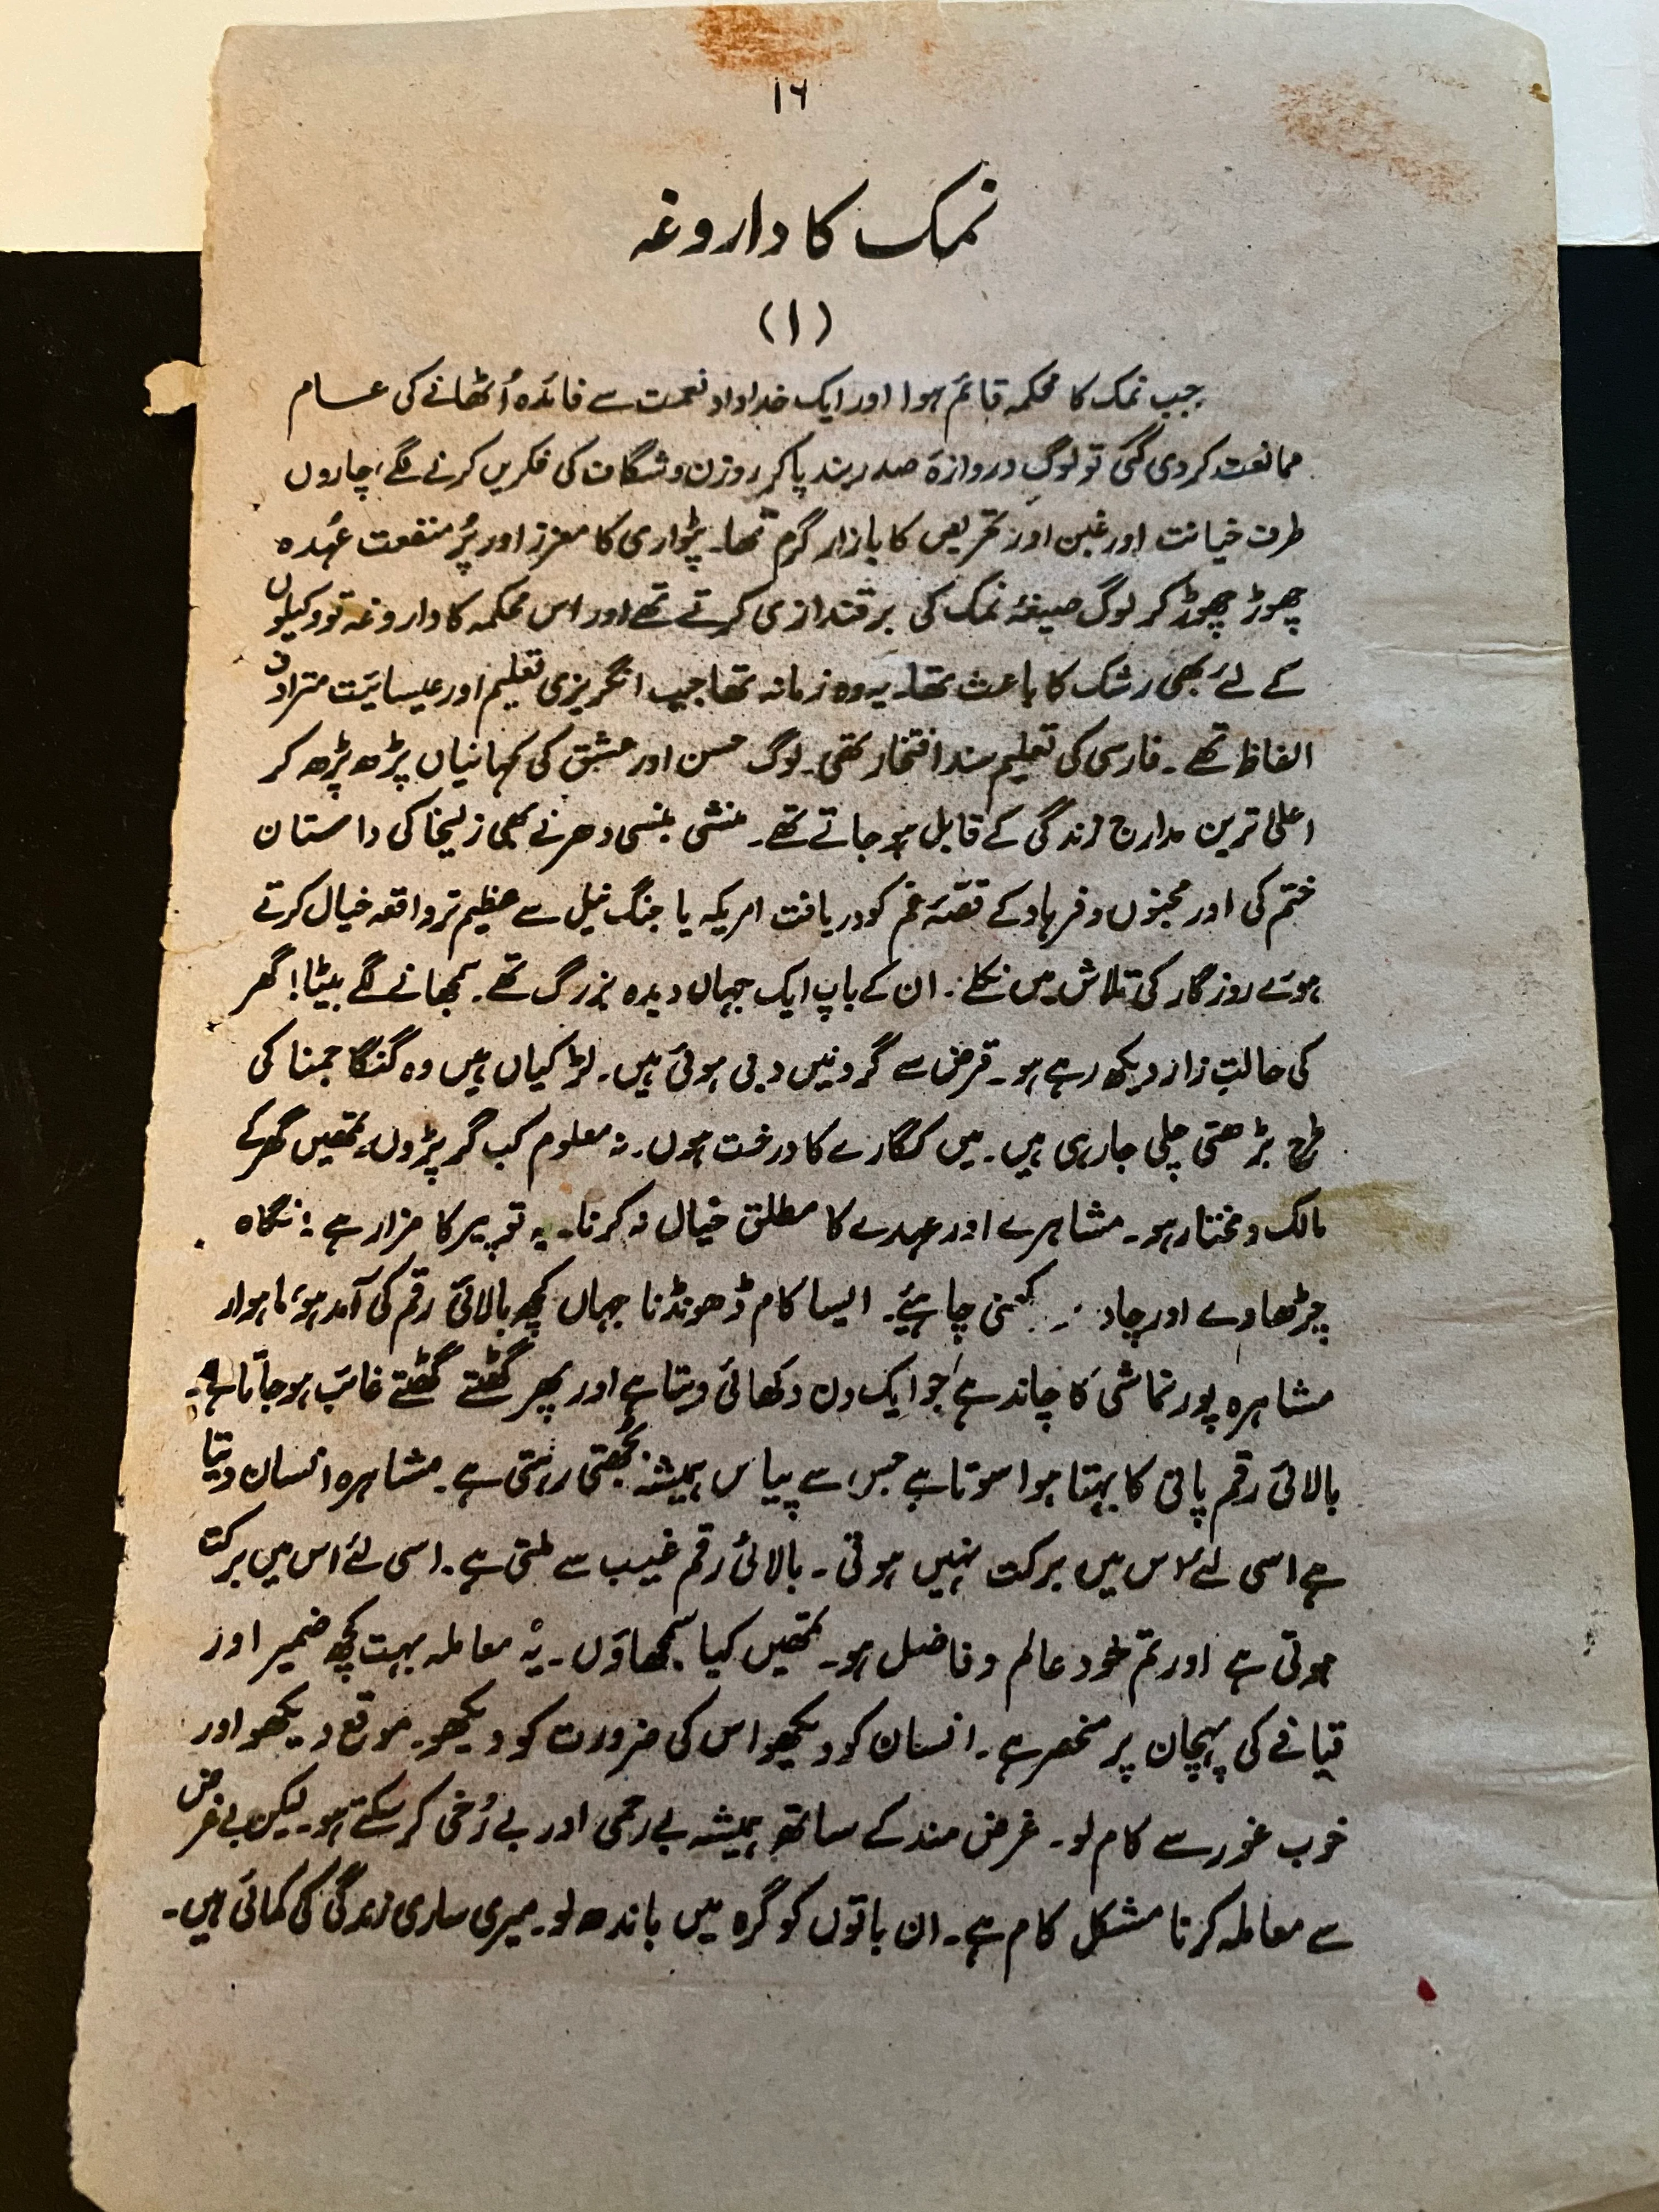 ۱۶
نمک کا داروغہ
(۱)
جب نمک کا محکمہ قائم ہوا اور ایک خداداد نعمت سے فائدہ اُٹھانے کی عام
ممانعت کر دی گئی تو لوگ دروازۂ صدر بند پا کر روزن و شگاف کی فکریں کرنے لگے، چاروں
طرف خیانت اور غبن اور تحریص کا بازار گرم تھا۔ پٹواری کا معزز اور پُر منفعت عُہدہ
چھوڑ چھوڑ کر لوگ صیغۂ نمک کی برقندازی کرتے تھے اور اس محکمہ کا داروغہ تو وکیلوں
کے لئے بھی رشک کا باعث تھا۔ یہ وہ زمانہ تھا جب انگریزی تعلیم اور عیسائیت مترادف
الفاظ تھے۔ فارسی کی تعلیم سند افتخار تھی۔ لوگ حسن اور عشق کی کہانیاں پڑھ پڑھ کر
اعلیٰ ترین مدارج زندگی کے قابل ہو جاتے تھے۔ منشی بنسی دھر نے بھی زلیخا کی داستان
ختم کی اور مجنوں و فرہاد کے قصّۂ غم کو دریافت امریکہ یا جنگ نیل سے عظیم تر واقعہ خیال کرتے
ہوئے روزگار کی تلاش میں نکلے۔ ان کے باپ ایک جہاں دیدہ بزرگ تھے۔ سمجھانے لگے بیٹا! گھر
کی حالتِ زار دیکھ رہے ہو۔ قرض سے گردنیں دبی ہوئی ہیں۔ لڑکیاں ہیں وہ گنگا جمنا کی
طرح بڑھتی چلی جا رہی ہیں۔ میں کگارے کا درخت ہوں۔ نہ معلوم کب گر پڑوں۔ تمھیں گھر کے
مالک و مختار ہو۔ مشاہرے اور عہدے کا مطلق خیال نہ کرنا۔ یہ تو پیر کا مزار ہے؛ نگاہ
چڑھاوے اور چاد ر کھنی چاہیئے۔ ایسا کام ڈھونڈنا جہاں کچھ بالائی رقم کی آمد ہو، ماہوار
مشاہرہ پورنماشی کا چاند ہے جو ایک دن دکھائی دیتا ہے اور پھر گھٹتے گھٹتے غائب ہو جاتا ہے۔
بالائی رقم پانی کا بہتا ہوا سوتا ہے جس سے پیاس ہمیشہ بُجھتی رہتی ہے۔ مشاہرہ انسان دیتا
ہے اسی لئے اس میں برکت نہیں ہوتی۔ بالائی رقم غیب سے ملتی ہے۔ اسی لئے اس میں برکت
ہوتی ہے اور تم خود عالم و فاضل ہو۔ تمھیں کیا سمجھاؤں۔ یہ معاملہ بہت کچھ ضمیر اور
قیافے کی پہچان پر منحصر ہے۔ انسان کو دیکھو اس کی ضرورت کو دیکھو۔ موقع دیکھو اور
خوب غور سے کام لو۔ غرض مند کے ساتھ ہمیشہ بے رحمی اور بے رُخی کر سکتے ہو۔ لیکن بے غرض
سے معاملہ کرنا مشکل کام ہے۔ ان باتوں کو گرہ میں باندھ لو۔ میری ساری زندگی کی کمائی ہیں۔